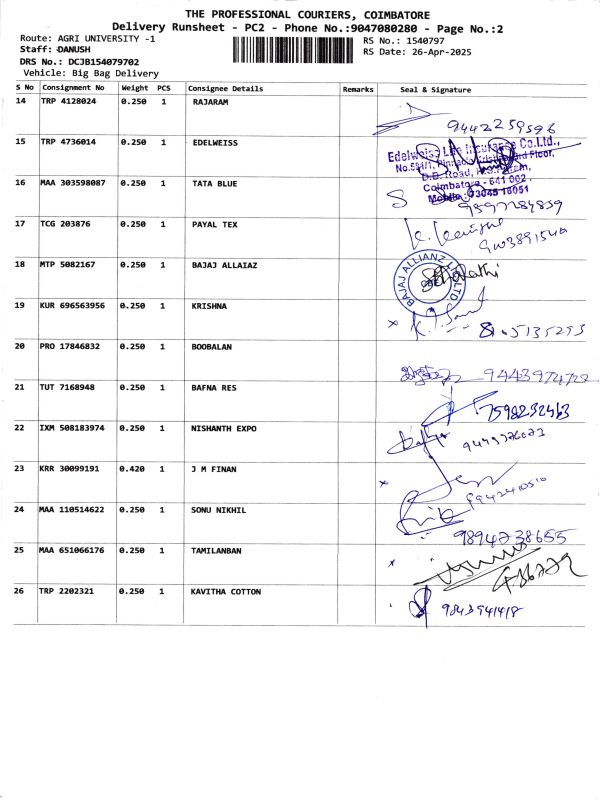 THE PROFESSIONAL COURIERS, COIMBATORE
Delivery Runsheet - PC2 - Phone No.:9047080280 - Page No.:2
Route: AGRI UNIVERSITY -1
RS No.: 1540797
Staff: DANUSH
RS Date: 26-Apr-2025
DRS No.: DCJB154079702
Vehicle: Big Bag Delivery
S No Consignment No Weight PCS Consignee Details Remarks Seal & Signature
14 TRP 4128024 0.250 1 RAJARAM
9442259596
15 TRP 4736014 0.250 1 EDELWEISS
Edelweiss Life Insurance Co.Ltd.,
Floor,
D.B. Road,
Coimbatore - 641 002
16 MAA 303598087 0.250 1 TATA BLUE
17 TCG 203876 0.250 1 PAYAL TEX
18 MTP 5082167 0.250 1 BAJAJ ALLAIAZ
BAJAJ ALLIANZ
19 KUR 696563956 0.250 1 KRISHNA
20 PRO 17846832 0.250 1 BOOBALAN
9443974722
21 TUT 7168948 0.250 1 BAFNA RES
7598232463
22 IXM 508183974 0.250 1 NISHANTH EXPO
23 KRR 30099191 0.420 1 J M FINAN
24 MAA 110514622 0.250 1 SONU NIKHIL
9894738655
25 MAA 651066176 0.250 1 TAMILANBAN
26 TRP 2202321 0.250 1 KAVITHA COTTON
9843941418